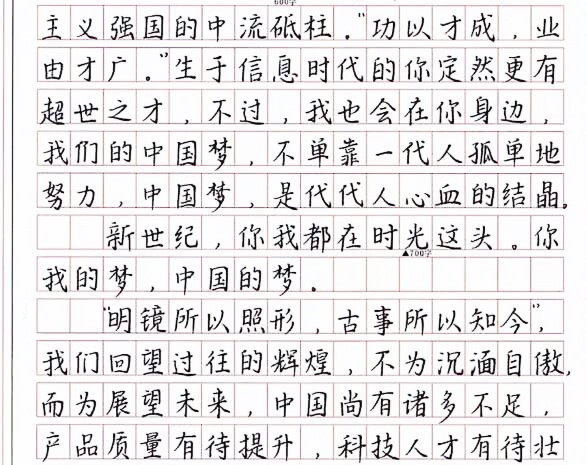 600字
主义强国的中流砥柱。“功以才成，业
由才广。”生于信息时代的你定然更有
超世之才，不过，我也会在你身边，
我们的中国梦，不单靠一代人孤单地
努力，中国梦，是代代人心血的结晶。
新世纪，你我都在时光这头。你
▲700字
我的梦，中国的梦。
“明镜所以照形，古事所以知今”，
我们回望过往的辉煌，不为沉湎自傲，
而为展望未来，中国尚有诸多不足，
产品质量有待提升，科技人才有待壮